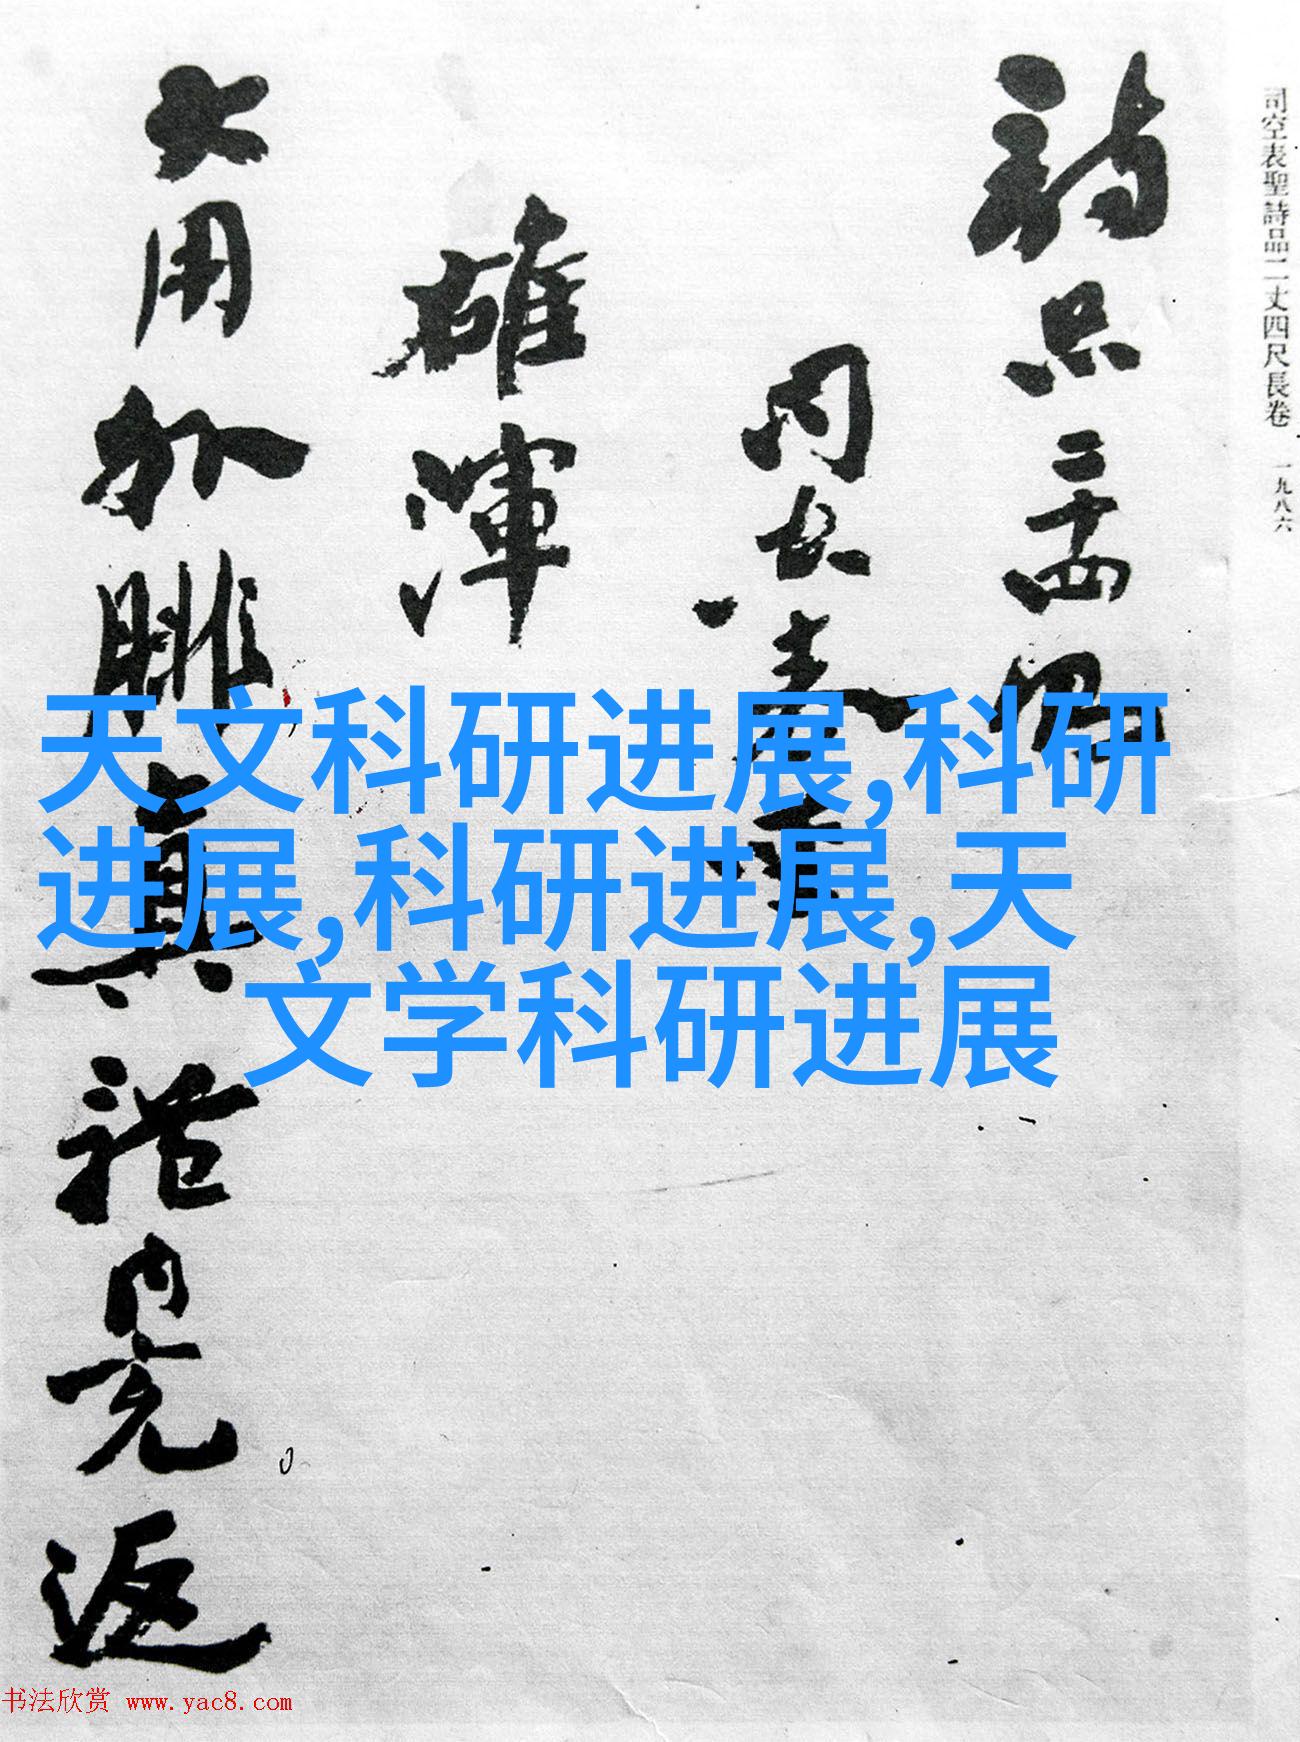 司空表聖詩品二丈四尺長卷 一九八六
詩品二十四
雄渾
大用外腓真體內充返
天文科研进展,科研
进展,科研进展,天
文学科研进展
书法欣赏 www.yac8.com